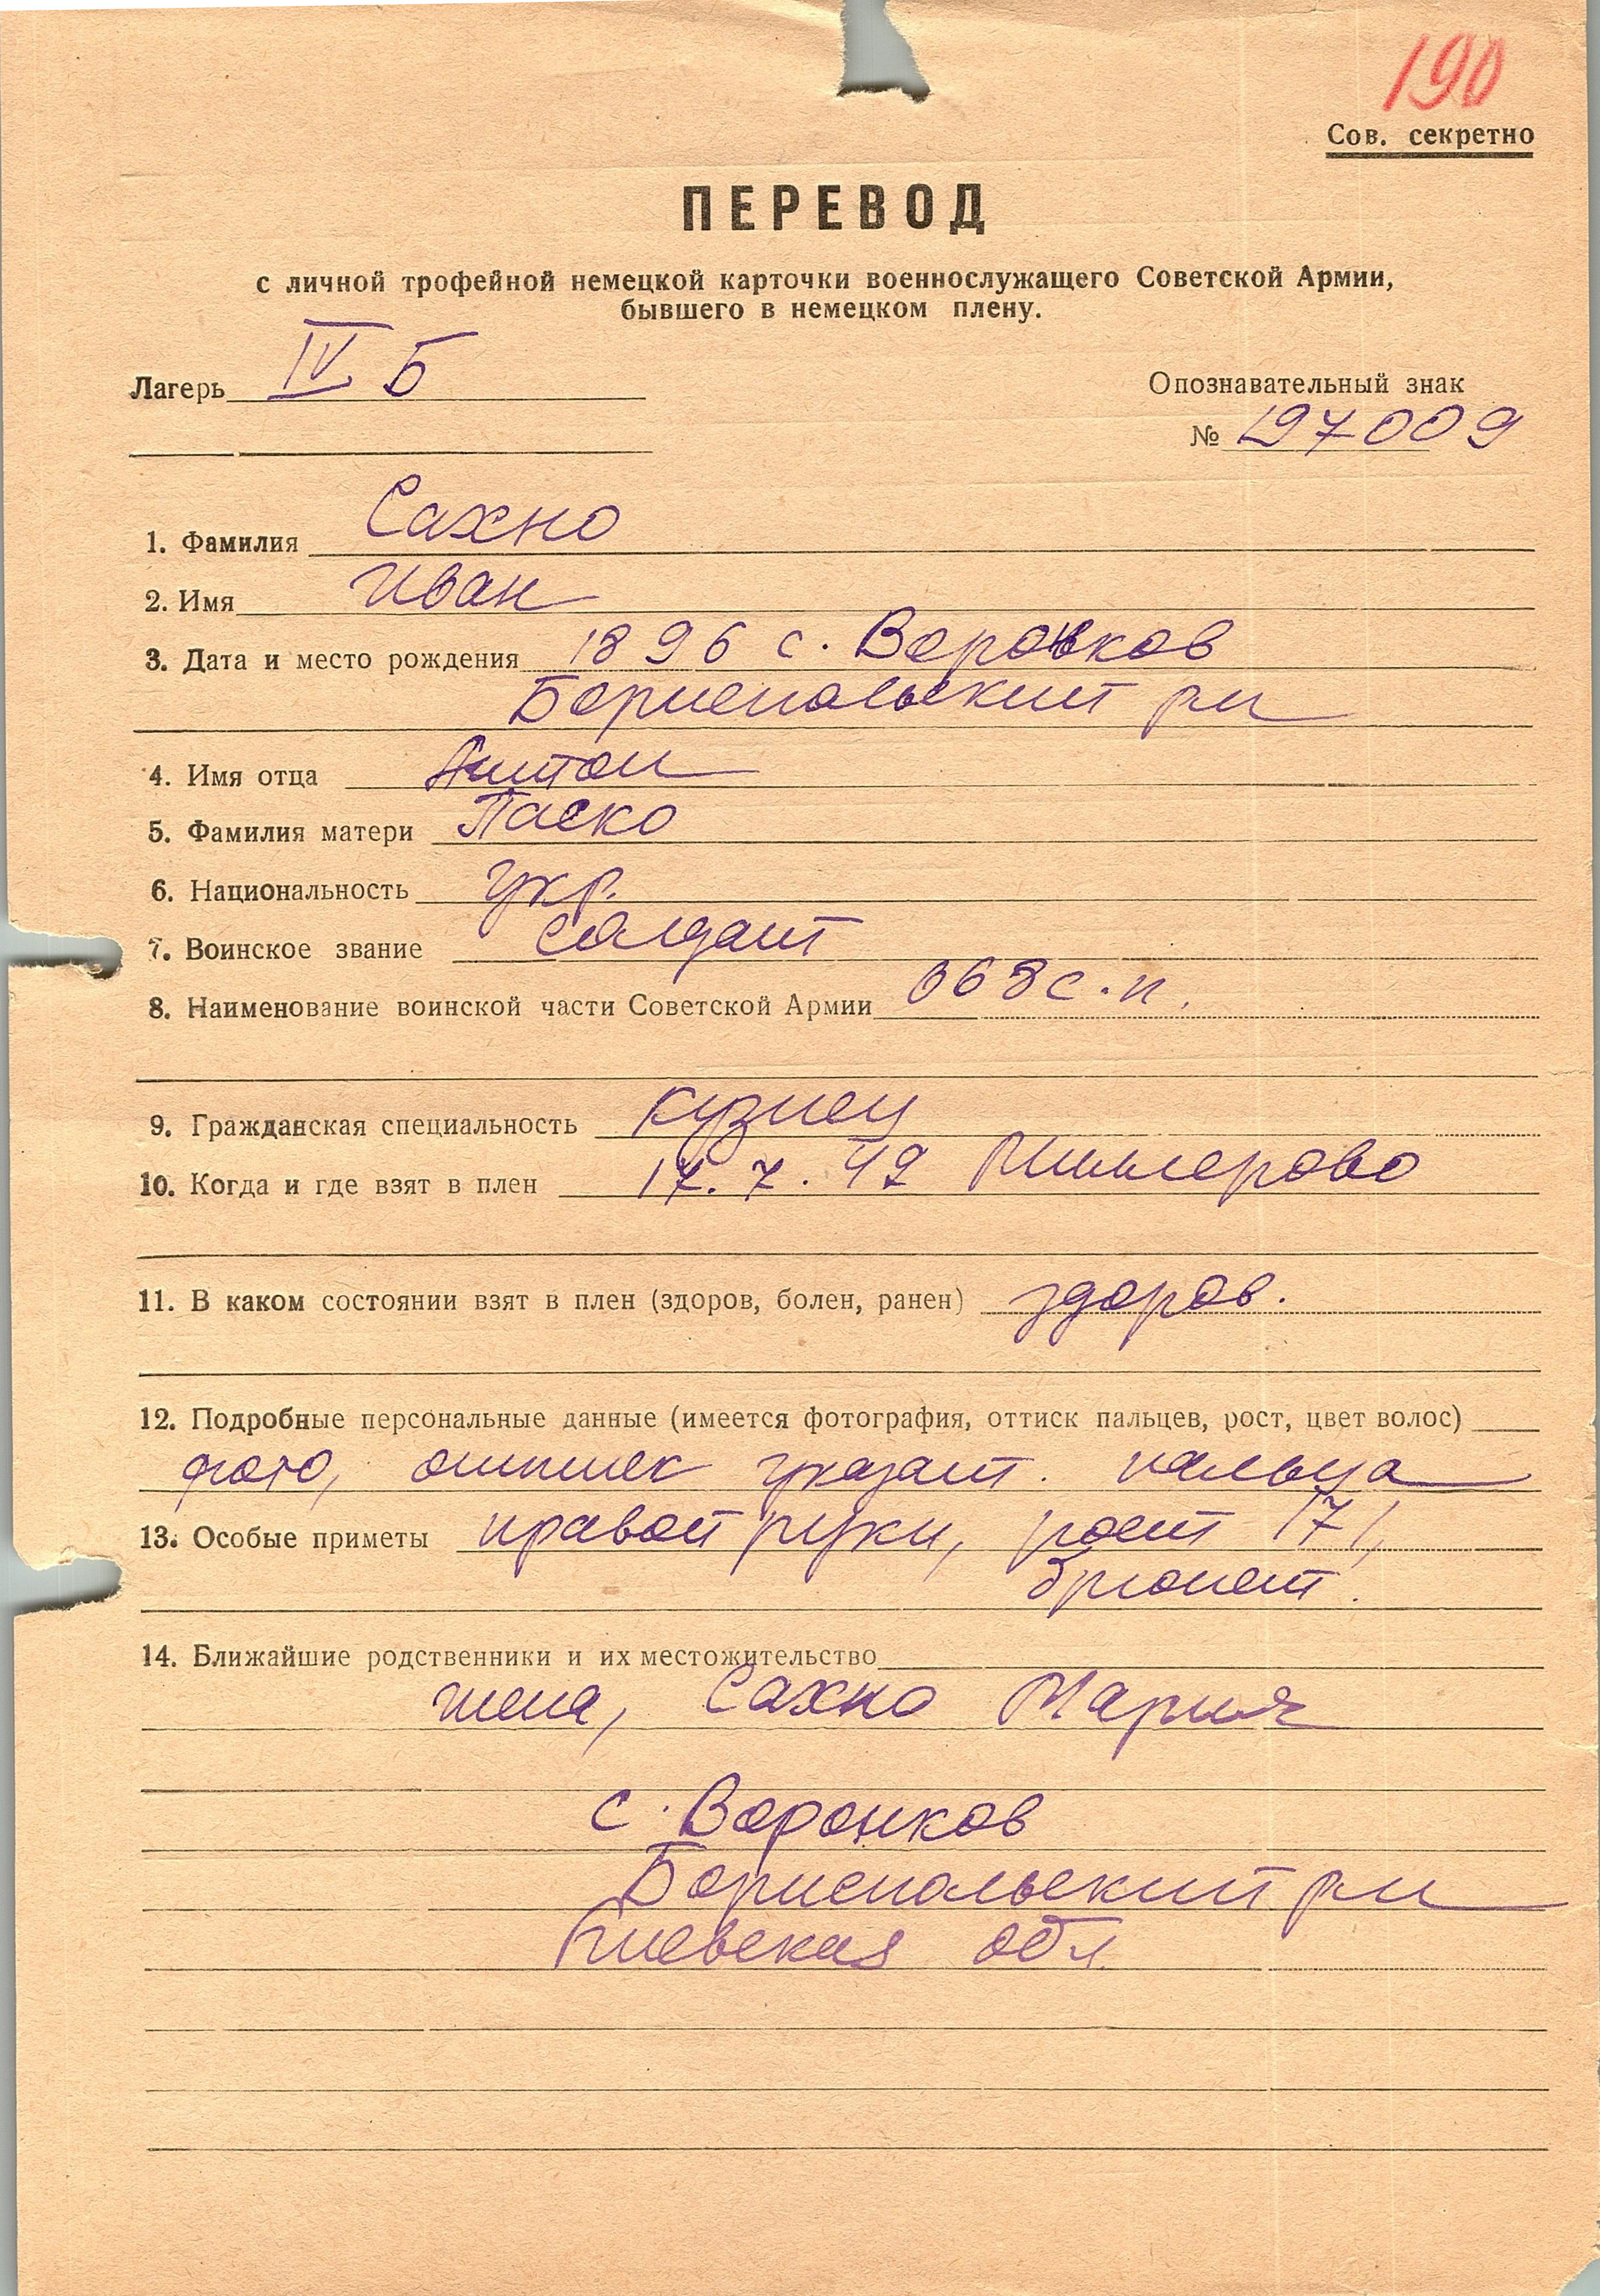 190
Сов. секретно
ПЕРЕВОД
с личной трофейной немецкой карточки военнослужащего Советской Армии,
бывшего в немецком плену.
Лагерь IV Б
Опознавательный знак
№ 197009
1. Фамилия Сахно
2. Имя Иван
3. Дата и место рождения 1896 с. Воронков
Бориспольский р-н
4. Имя отца Антон
5. Фамилия матери Паско
6. Национальность укр.
7. Воинское звание солдат
8. Наименование воинской части Советской Армии 868 с.п.
9. Гражданская специальность кузнец
10. Когда и где взят в плен 17.7.42 Миллерово
11. В каком состоянии взят в плен (здоров, болен, ранен) здоров.
12. Подробные персональные данные (имеется фотография, оттиск пальцев, рост, цвет волос)
фото, оттиск указат. пальца
13. Особые приметы правой руки, рост 171,
брюнет.
14. Ближайшие родственники и их местожительство
жена, Сахно Мария
с. Воронков
Бориспольский р-н
Киевская обл.